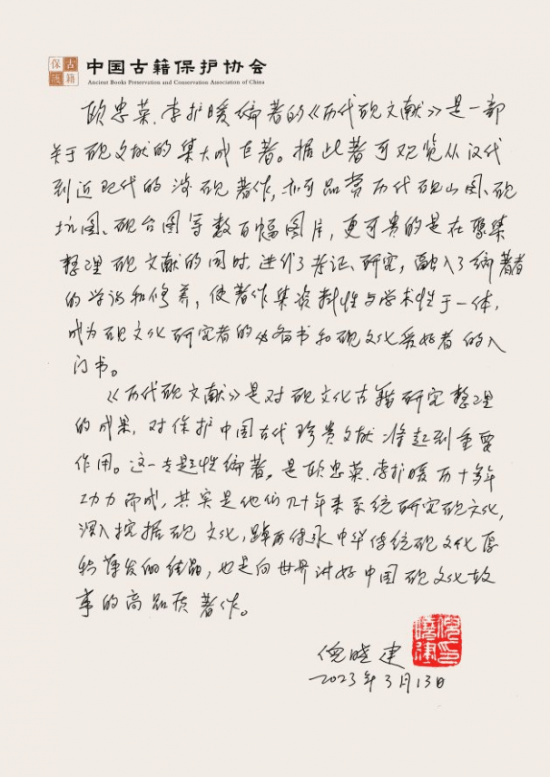 古籍保护
中国古籍保护协会
Ancient Books Preservation and Conservation Association of China
欧忠荣、李护暖编著的《历代砚文献》是一部
关于砚文献的集大成巨著。据此著可观览从汉代
到近现代的涉砚著作,亦可品赏历代砚山图、砚
坑图、砚台图等数百幅图片,更可贵的是在聚集
整理砚文献的同时,进行了考证、研究,融入了编著者
的学识和修养,使著作集资料性与学术性于一体,
成为砚文化研究者的必备书和砚文化爱好者的入
门书。
《历代砚文献》是对砚文化古籍研究整理
的成果,对保护中国古代珍贵文献将起到重要
作用。这一专题性编著,是欧忠荣、李护暖历十多年
功力而成,其实是他们几十年来系统研究砚文化,
深入挖掘砚文化,踔厉传承中华传统砚文化厚
积薄发的结晶,也是向世界讲好中国砚文化故
事的高品质著作。
倪晓建
2023年3月13日